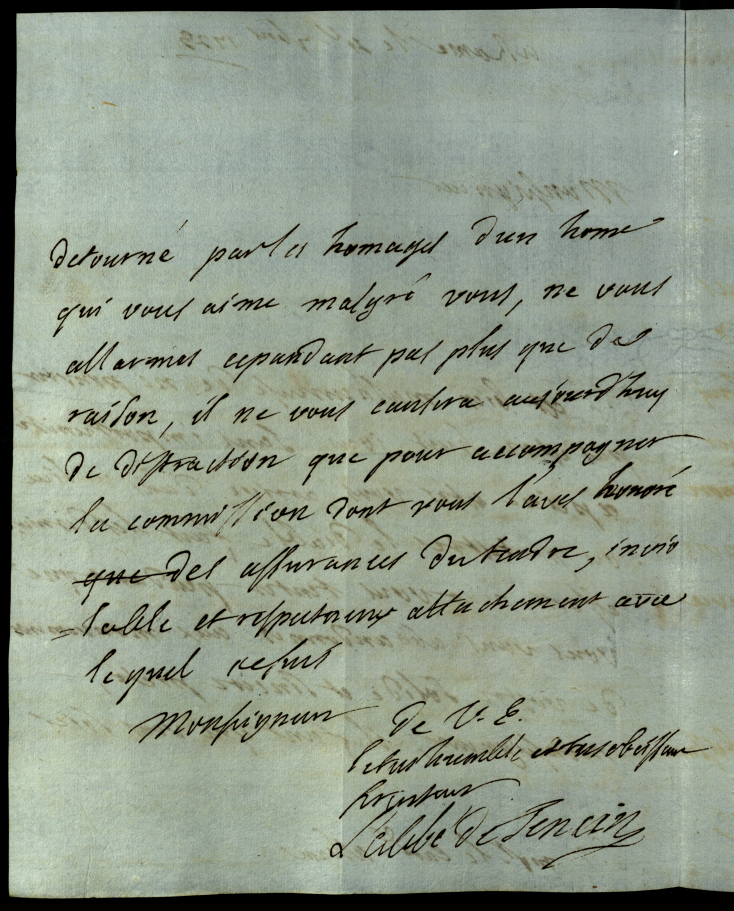 detourné par les homages dun home
qui vous aime malgré vous, ne vous
allarmes cepandant pas plus que de
raison, il ne vous causera aujourd'huy
de distraction que pour accompagner
la commission dont vous l'aves honoré
que des assurances du tendre, invio
=lable et respectueux attachement avec
lequel je suis
Monseigneur
de V. E.
le tres humble et tres obeissant
serviteur
L'abbé de Tencin